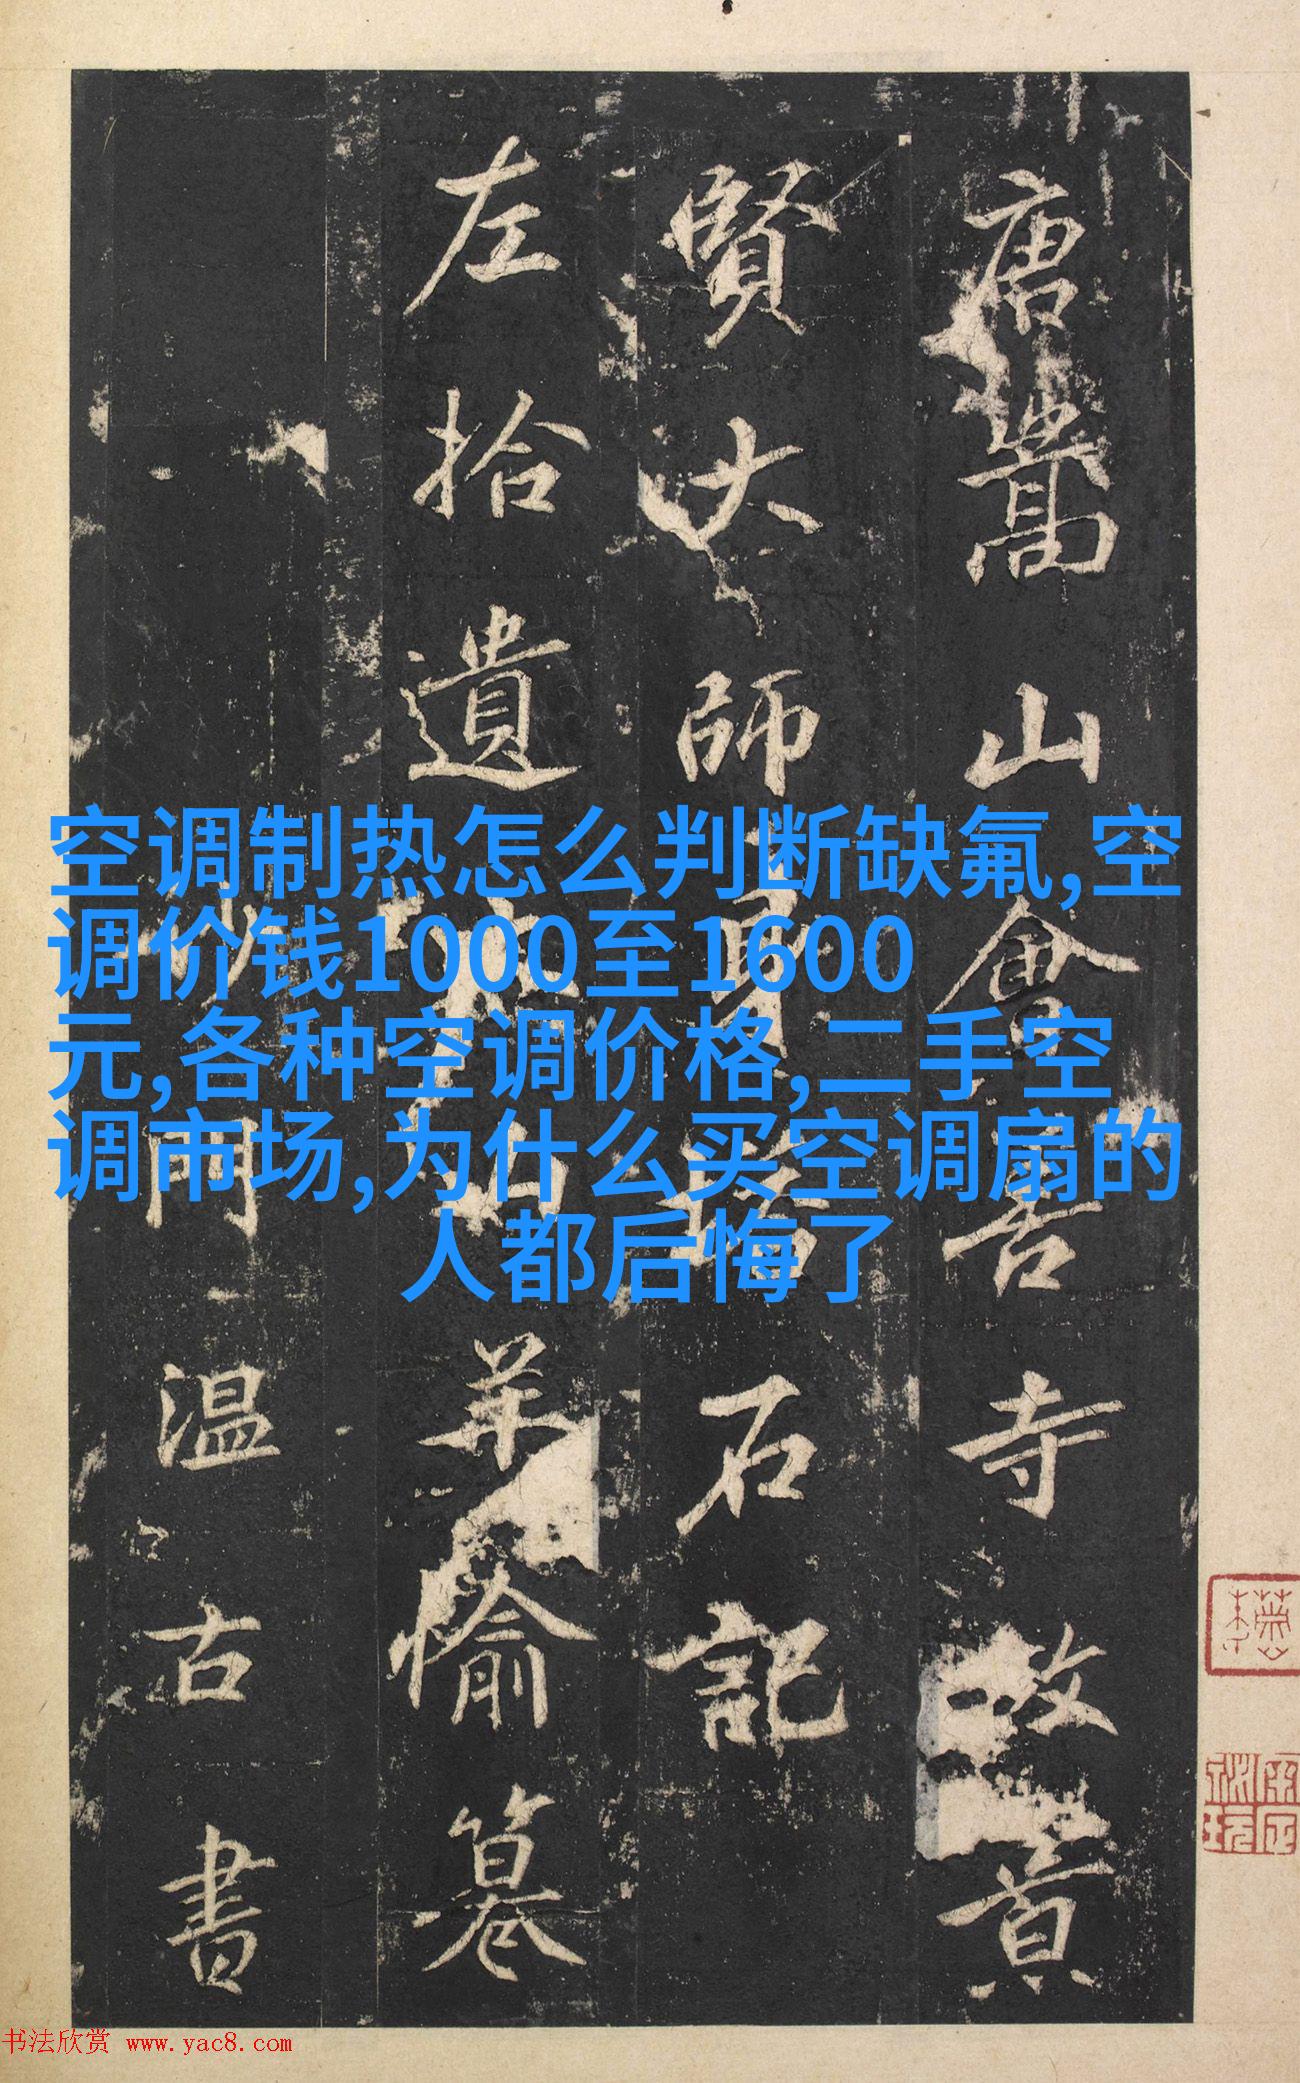 唐嵩山會善寺敬賢
大師身塔石記
左拾遺
羊愉纂
沙門溫古書
空调制热怎么判断缺氟,空
调价钱1000至1600
元,各种空调价格,二手空
调市场,为什么买空调扇的
人都后悔了
书法欣赏 www.yac8.com